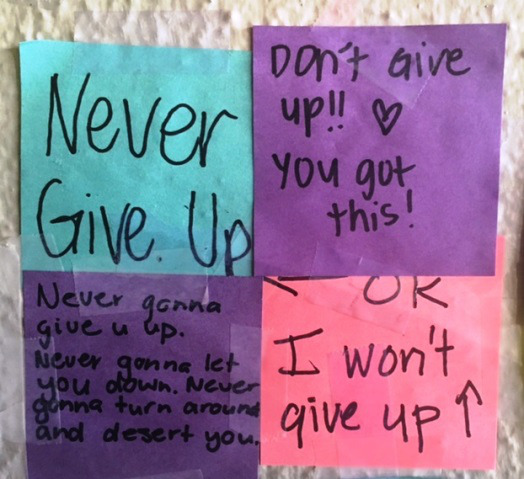 Never
Give. Up
Don't Give
up!! ♡
You got
this!
Never gonna
give u up.
Never gonna let
you down. Never
gonna turn around
and desert you.
← OK
I won't
give up ↑